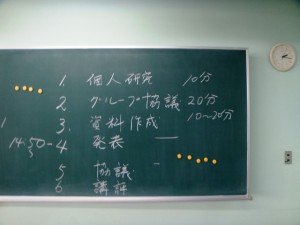 1. 個人研究 10分
2. グループ協議 20分
3. 資料作成 10~20分
14:50- 4 発表
5 協議
6 講評